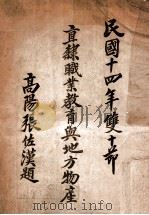 民國十四年雙十節
直隸職業教育與地方物產
高陽張佐漢題